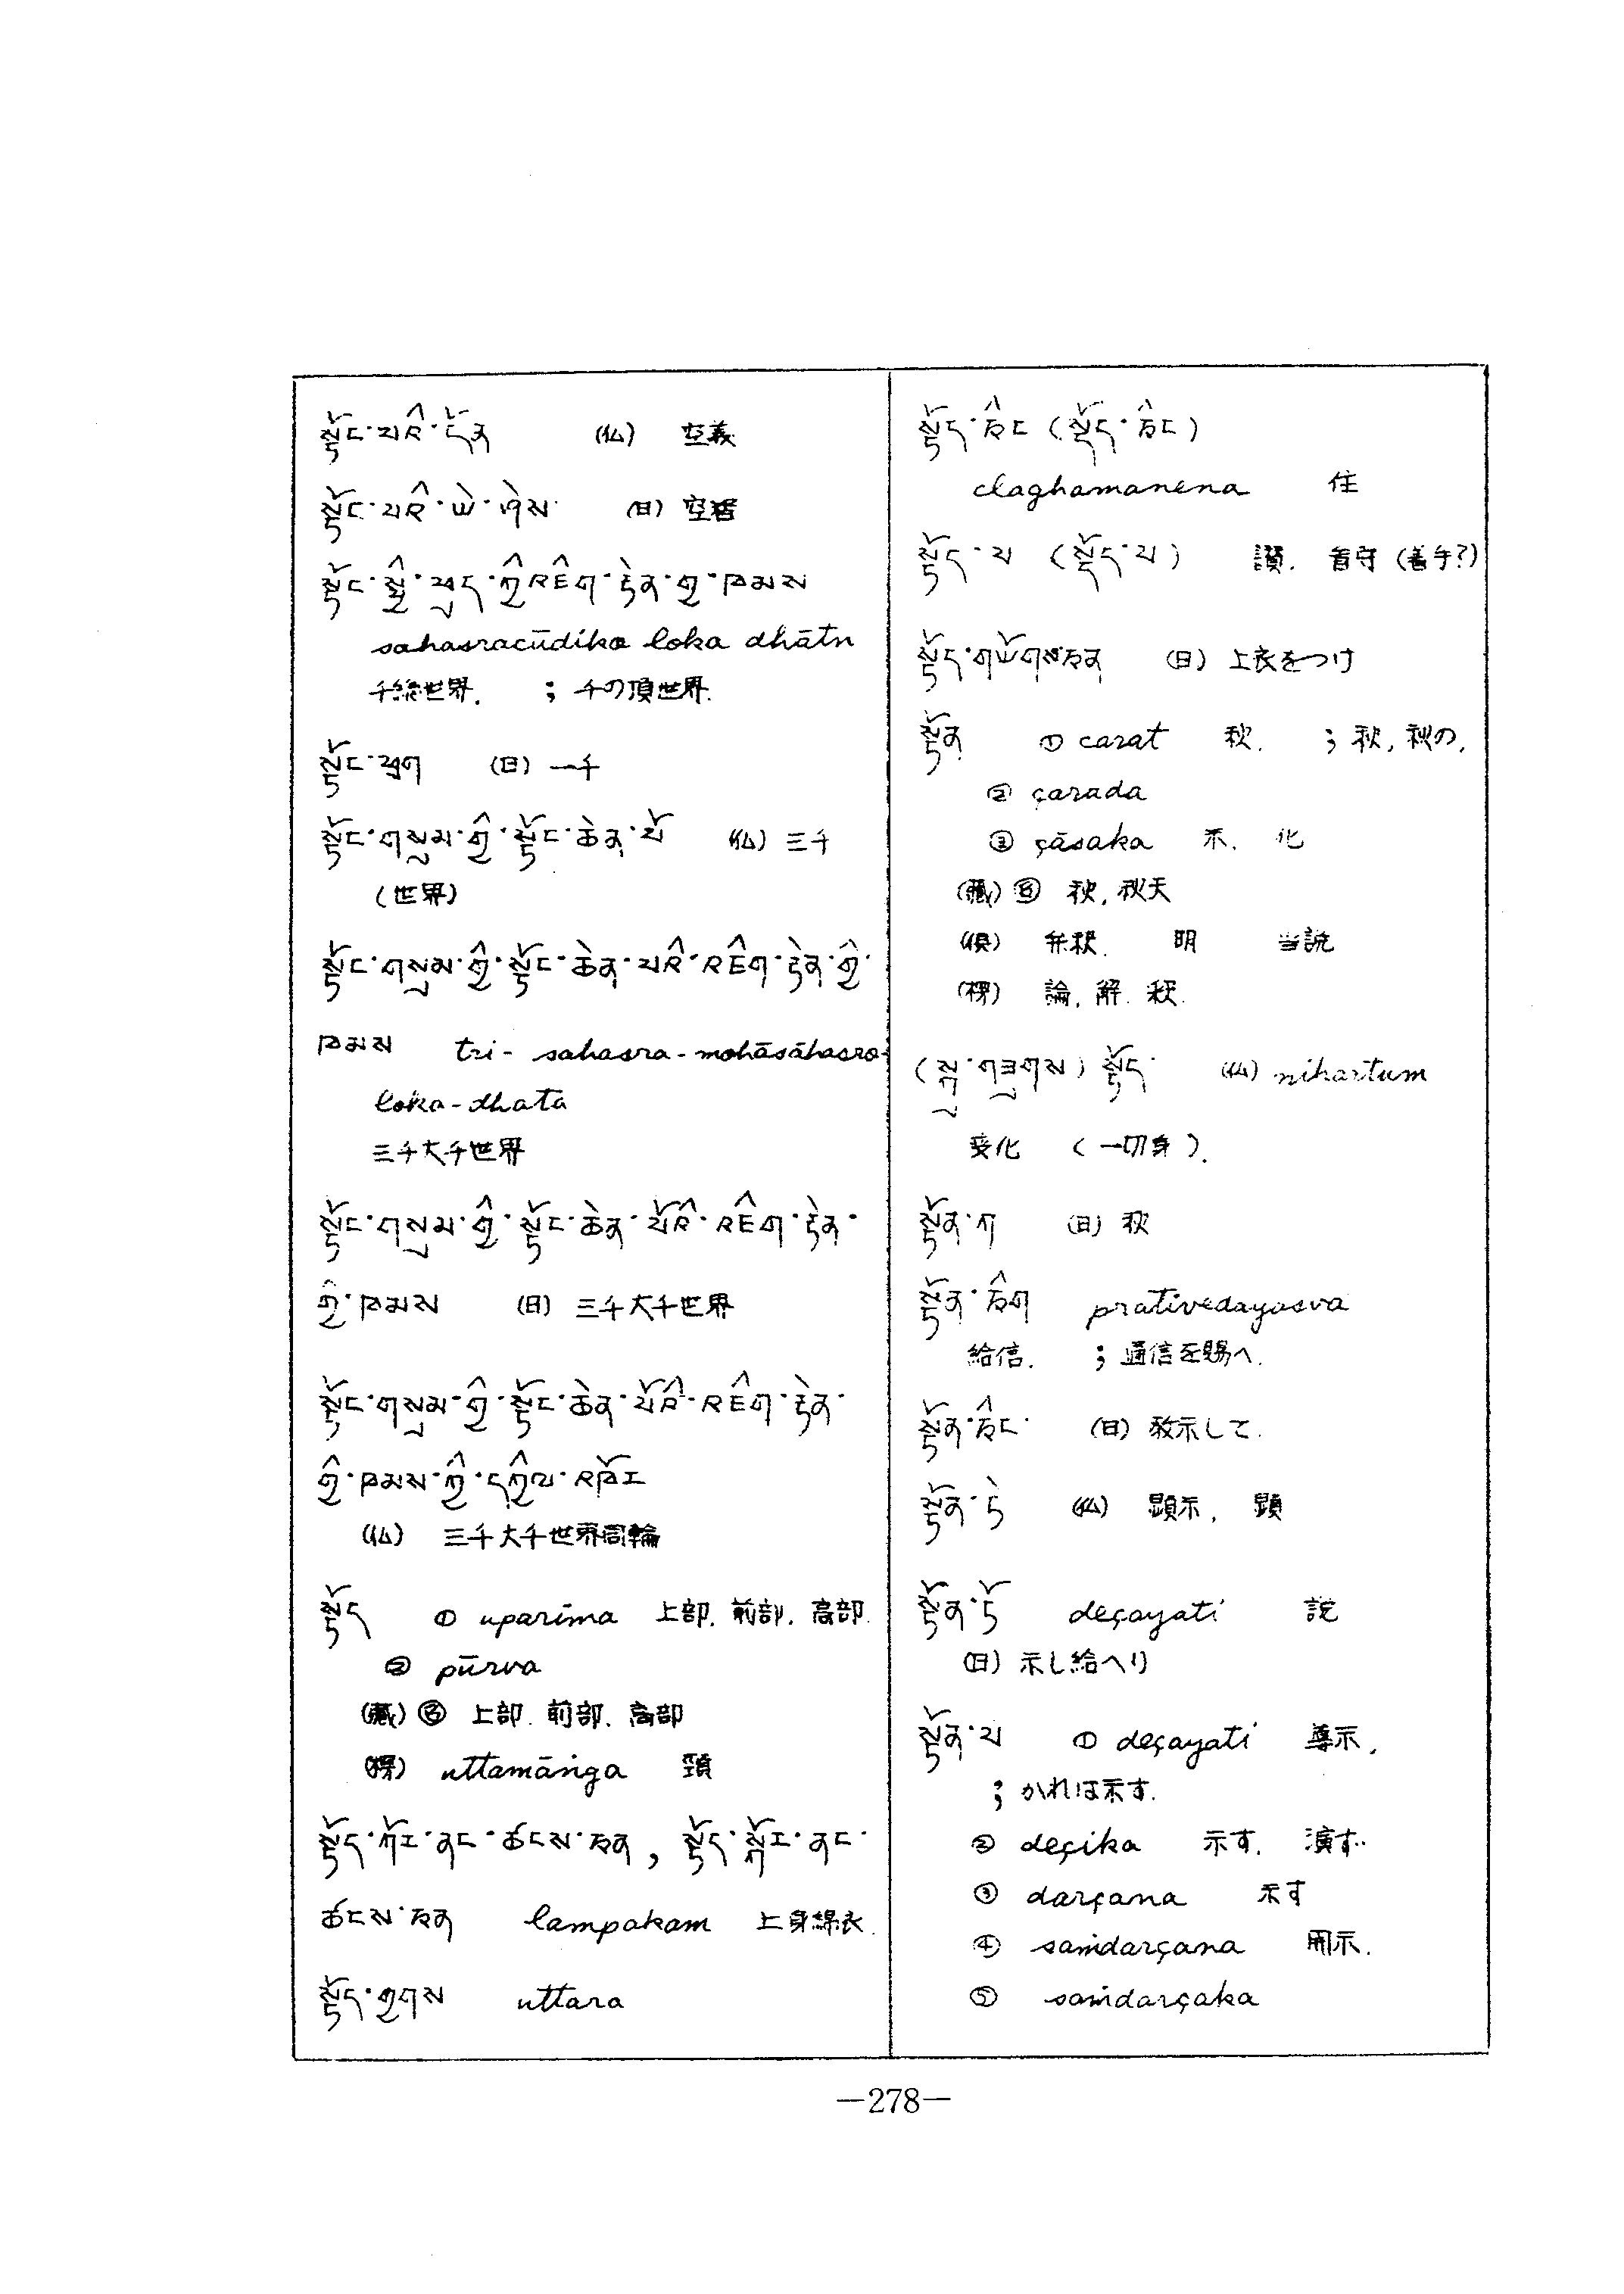 སྟོང་པའི་དོན (仏) 空義
སྟོང་པའི་ཡེ་ཤེས་ (日) 空智
སྟོང་སྤྱི་ཕུད་ཀྱི་འཇིག་རྟེན་གྱ་ཁམས
sahasracūdika loka dhātn
千総世界. ; 千の頂世界.
སྟོང་ཕྲག (日) 一千
སྟོང་གསུམ་གྱི་སྟོང་ཆེན་པོ (仏) 三千
(世界)
སྟོང་གསུམ་གྱི་སྟོང་ཆེན་པའི་འཇིག་རྟེན་གྱི་
ཁམས tri - sahasra - mohāsāhasra-
loka - dhata
三千大千世界
སྟོང་གསུམ་གྱི་སྟོང་ཆེན་པོའི་འཇིག་རྟེན་
གྱི་ཁམས (日) 三千大千世界
སྟོང་གསུམ་གྱི་སྟོང་ཆེན་པོའི་འཇིག་རྟེན་
གྱི་ཁམས་ཀྱི་དཀྱིལ་འཁོར
(仏) 三千大千世界周輪
སྟོད ① uparima 上部. 前部. 高部.
② pūrva
(蔵) 名 上部. 前部. 高部
(楞) uttamāṅga 頸
སྟོད་ཀོར་ནང་ཚངས་ཅན, སྟོད་སྐོར་ནང་
ཚངས་ཅན lampakam 上身綿衣.
སྟོད་གྱགས uttara
སྟོད་ཅིང (སྡོད་ཅིང)
claghamanena 住
སྟོད་པ (སྡོད་པ) 讃. 首守 (善手?)
སྟོད་གཡོགས་ཅན (日) 上衣をつけ
སྟོན ① carat 秋. ; 秋, 秋の.
② çarada
③ çāsaka 示. 化
(蔵) 名 秋, 秋天
(倶) 弁釈. 明 当説
(楞) 論. 解. 釈.
(སྐུ་གཟུགས) སྟོད་ (仏) nihartum
変化 (一切身).
སྟོན་ཀ (日) 秋
སྟོན་ཅིག prativedayasva
給信. ; 通信を賜へ.
སྟོན་ཅིང་ (日) 教示して.
སྟོན་ཏེ (仏) 顕示, 顕
སྟོན་ཏོ deçayati 説
(日) 示し給へり
སྟོན་པ ① deçayati 導示.
; かれは示す.
② deçika 示す. 演ず.
③ darçana 示す
④ saṁdarçana 開示.
⑤ saṁdarçaka
—278—